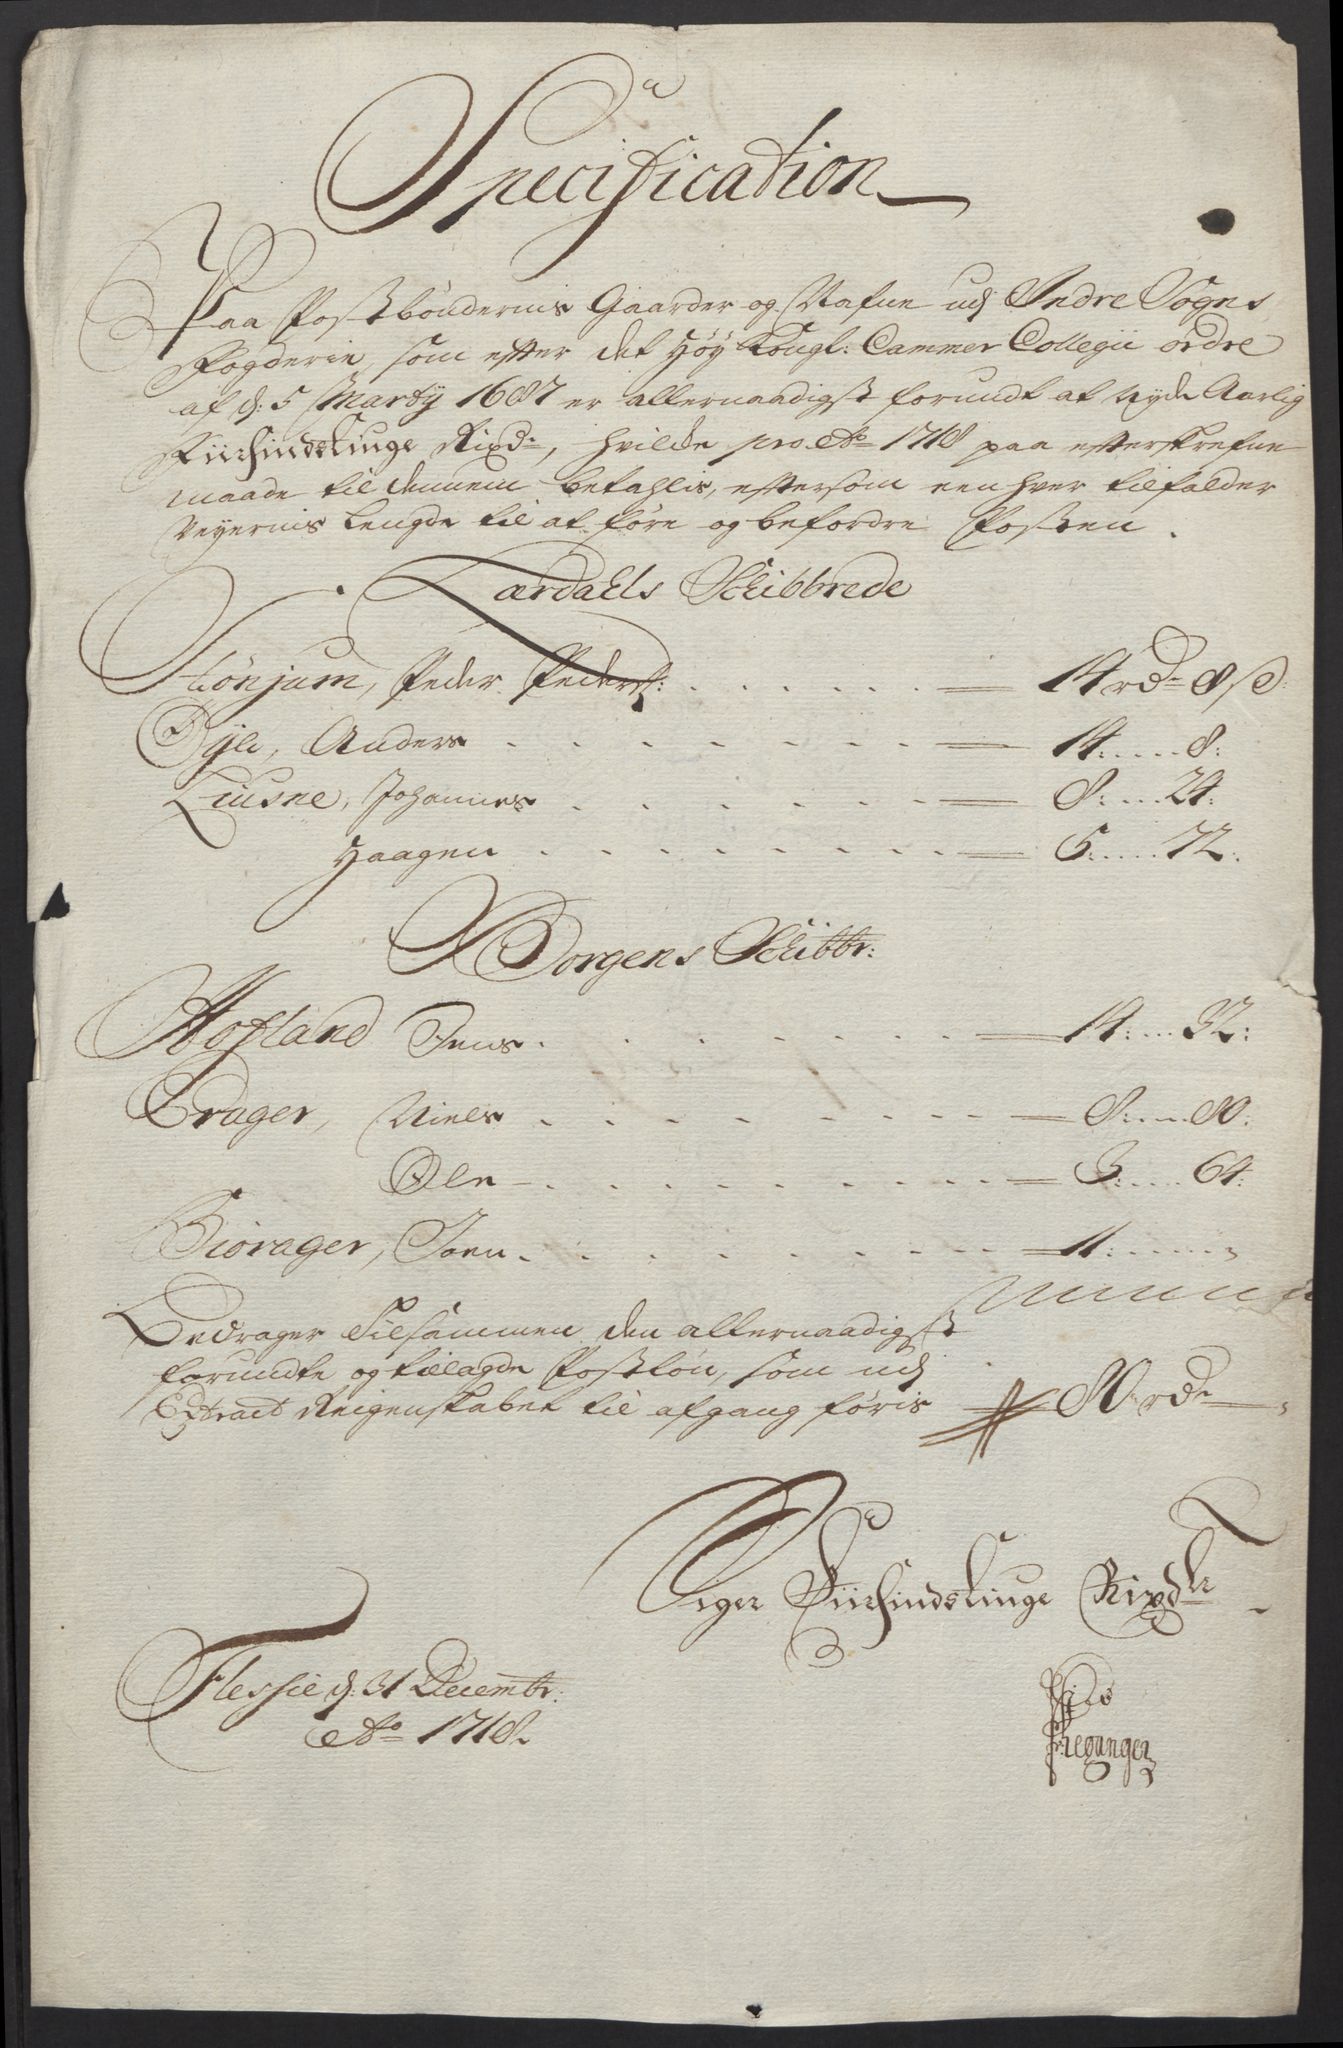 Specification
Paa Postböndernis Gaarder og Nafne udj Indre Sogns
Fogderie, som efter det Høy Kongl: Cammer Collegii ordre
af d: 5 Martij 1687 er allernaadigst forundt at nyde Aarlig
Fiirsindstiuge Rixdr, hvilche pro Ao 1718 paa efterskrefne
maade til dennem betahlis, eftersom een hver tilfalder
Veyernis Lengde til at føre og befordre Posten.
Lærdahls Schibbrede
Hönjum, Peder Peders: . . . . . . 14 rdr 8 s:
Øÿe, Anders . . . . . . . 14: .... 8:
Liusne, Johannes . . . . . . 8: .... 24:
Haagen . . . . . . . . 5: .... 72:
Borgens Schibbr:
Hofland Jens . . . . . . . 14: .... 32:
Crager, Niels . . . . . . . 8: .... 80:
Ole . . . . . . . . 3: .... 64:
Biørager, Joen . . . . . . . 11: ....
Bedrager Tilsammen den allernaadigst
forundte og tillagde Postløn, som udj
Extract Reigenskabet til afgang føris 80 rdr
Siger Fiirsindstiuge Rixdlr
Flessie d: 31 Decembr:
Ao 1718.